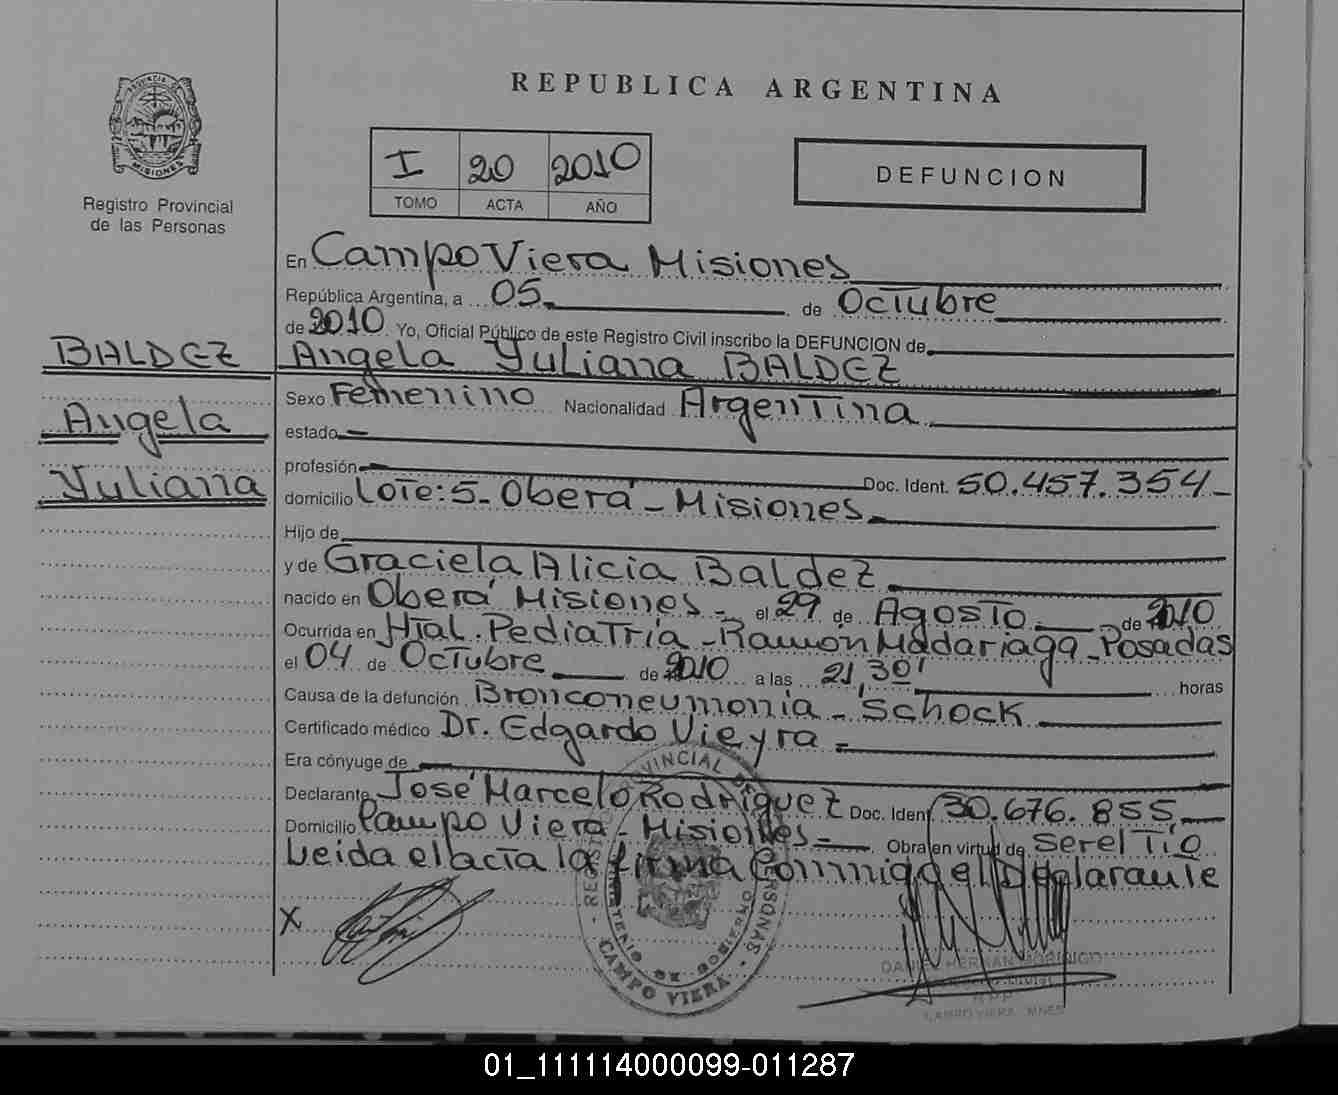 REPUBLICA ARGENTINA
PROVINCIA DE MISIONES
Registro Provincial
de las Personas
I 20 2010
TOMO ACTA AÑO
DEFUNCION
En Campo Viera Misiones
República Argentina, a 05 de Octubre
de 2010 Yo, Oficial Público de este Registro Civil inscribo la DEFUNCION de
BALDEZ Angela Yuliana BALDEZ
Sexo Femenino Nacionalidad Argentina
Angela
estado
profesión Doc. Ident. 50.457.354
Yuliana
domicilio Lote: 5 - Oberá - Misiones
Hijo de
y de Graciela Alicia Baldez
nacido en Oberá Misiones - el 29 de Agosto de 2010
Ocurrida en Htal. Pediatría - Ramón Madariaga - Posadas
el 04 de Octubre de 2010 a las 21,30' horas
Causa de la defunción Bronconeumonía - Schock
Certificado médico Dr. Edgardo Vieyra -
Era cónyuge de
Declarante José Marcelo Rodriguez Doc. Ident. 30.676.855
Domicilio Campo Viera - Misiones - Obra en virtud de Ser el Tío
Leida el acta la firma conmigo el Declarante
X
REGISTRO PROVINCIAL DE PERSONAS
MINISTERIO DE GOBIERNO
CAMPO VIERA
DANIEL HERNAN
CAMPO VIERA MNES
01_111114000099-011287